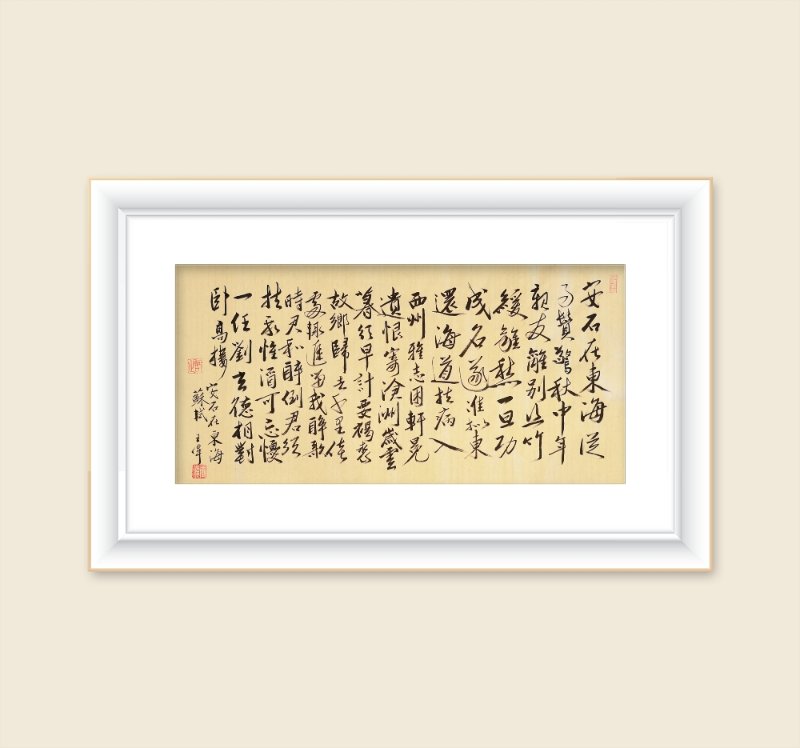 安石在東海從
事鬢驚秋中年
親友離別丝竹
緩離愁一旦功
成名遂准拟東
還海道扶病入
西州雅志困軒冕
遺恨寄滄洲歲雲
暮須早計要褐裘
故鄉歸去千里佳
處輒遲留我醉歌
時君和醉倒君須
扶我惟酒可忘憂
一任劉玄德相對
臥高樓
安石在東海
蘇軾 王偉